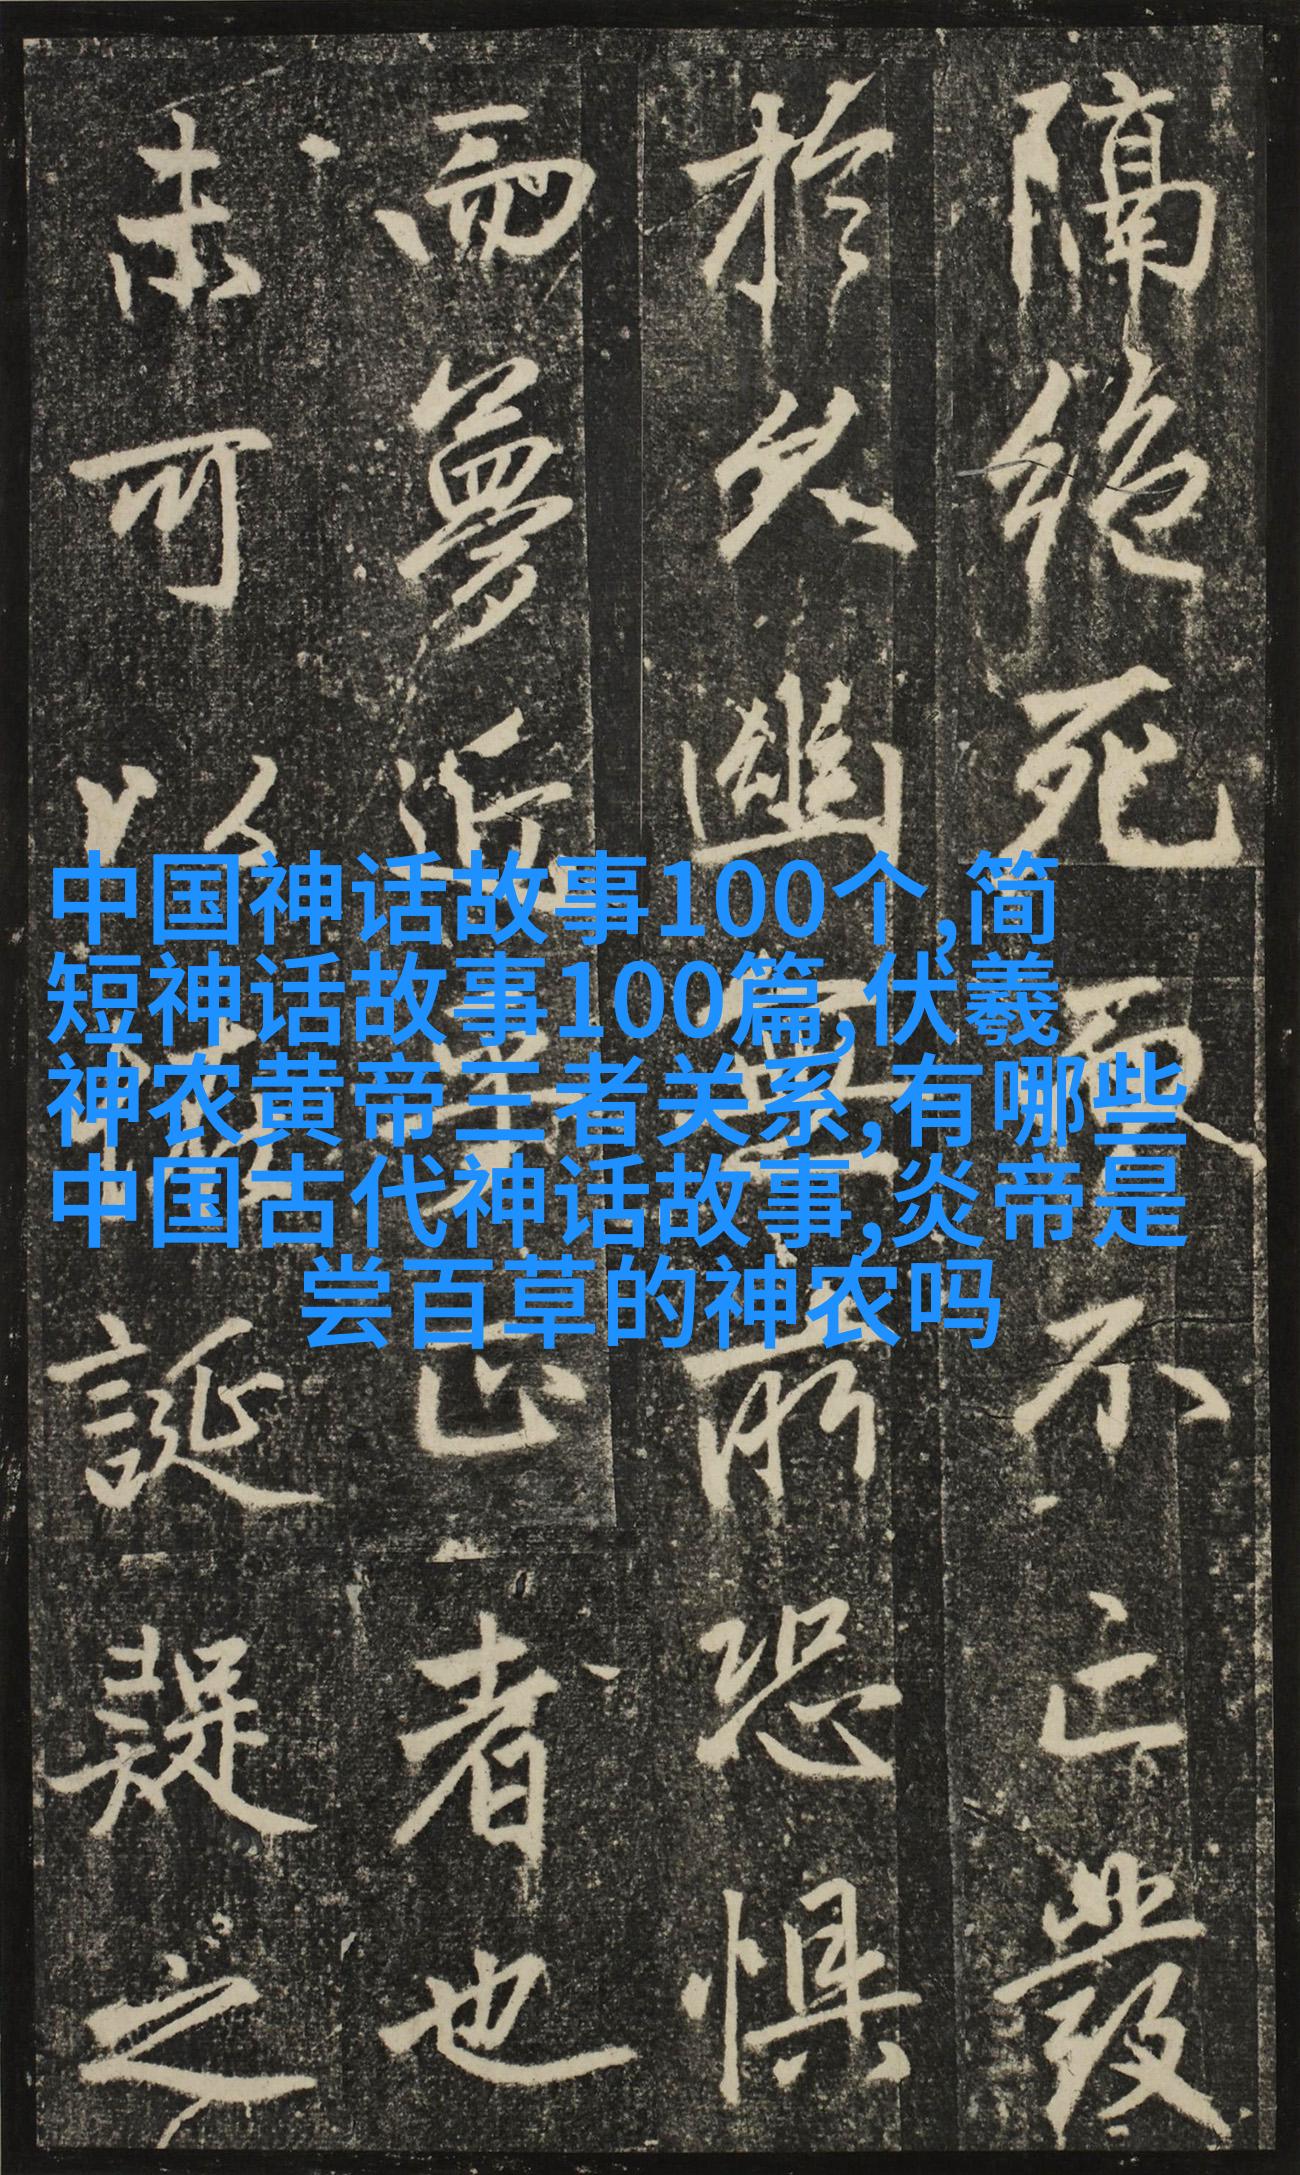 隔絶死不亡發
於久幽所恐懼
而夢近正者也
未可以誕疑之
中国神话故事100个,简
短神话故事100篇,伏羲
神农黄帝三者关系,有哪些
中国古代神话故事,炎帝是
尝百草的神农吗